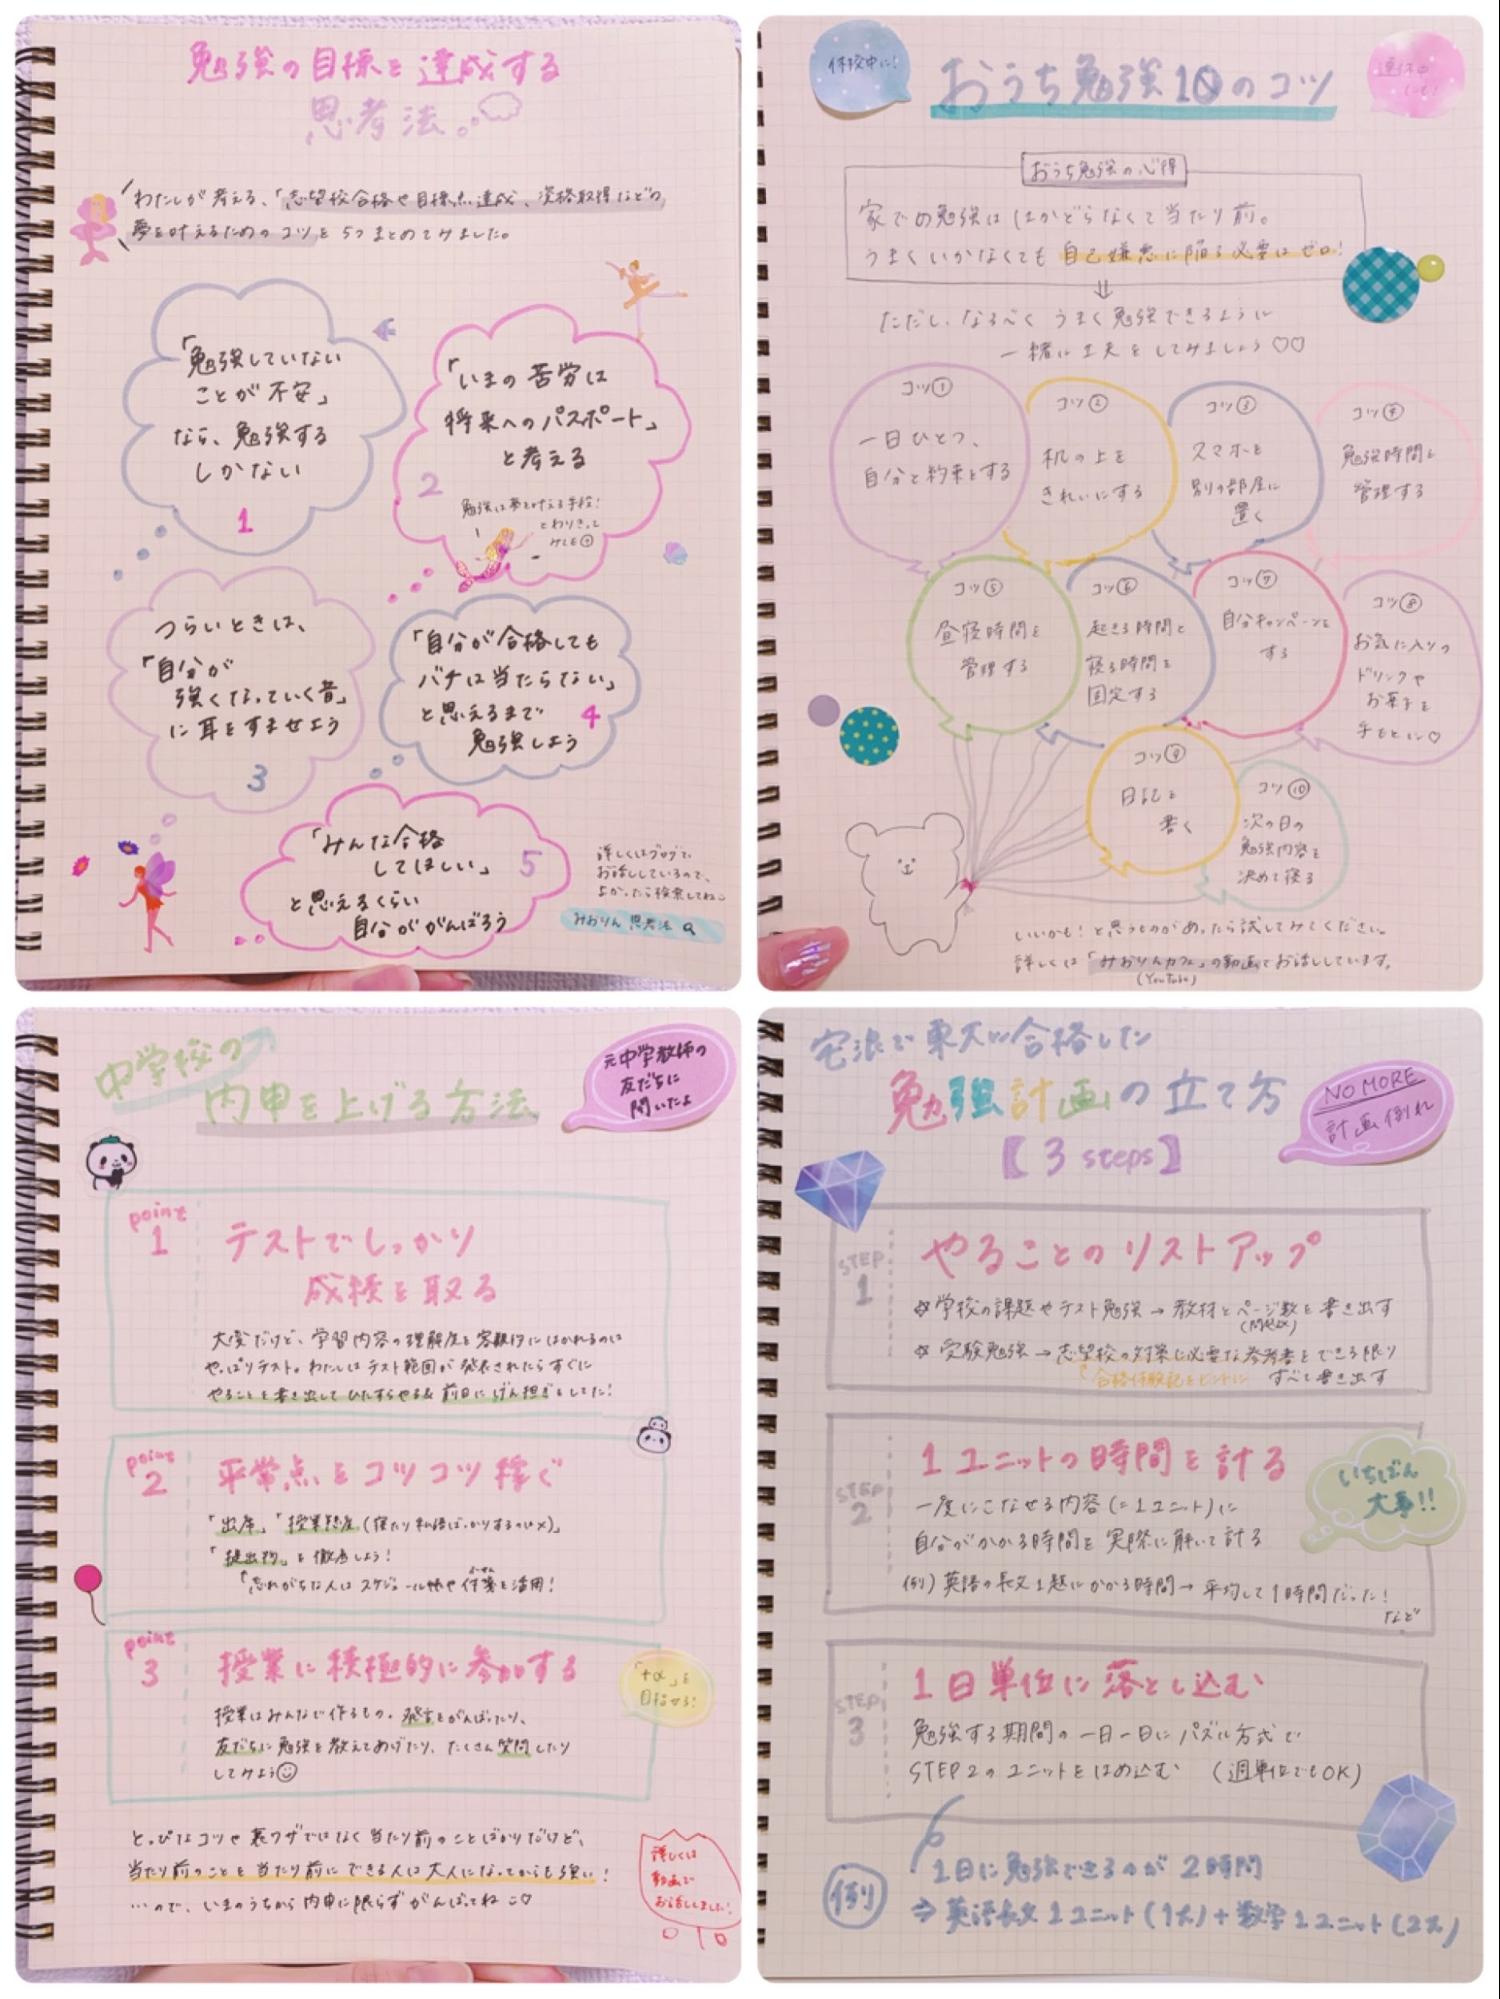 勉強の目標を達成する
思考法。
わたしが考える、「志望校合格や目標点達成、資格取得などの
夢を叶えるためのコツを5つまとめてみました。
「勉強していない
ことが不安」
なら、勉強する
しかない
1
「いまの苦労は
将来へのパスポート」
と考える
2
勉強は夢を叶える手段!
とわりきって
みる
つらいときは、
「自分が
強くなっていく音」
に耳をすませよう
3
「自分が合格しても
バチは当たらない」
と思えるまで
勉強しよう
4
「みんな合格
してほしい」
と思えるくらい
自分ががんばろう
5
詳しくはブログで
お話ししているので、
よかったら検索してね
みおりん 思考法
休校中に!
おうち勉強10のコツ
連休中
にも!
おうち勉強の心得
家での勉強ははかどらなくて当たり前。
うまくいかなくても自己嫌悪に陥る必要はゼロ!
⇓
ただし、なるべくうまく勉強できるように
一緒に工夫をしてみましょう♡♡
コツ①
一日ひとつ、
自分と約束をする
コツ②
机の上を
きれいにする
コツ③
スマホを
別の部屋に
置く
コツ④
勉強時間を
管理する
コツ⑤
昼寝時間を
管理する
コツ⑥
起きる時間と
寝る時間を
固定する
コツ⑦
自分キャンペーンを
する
コツ⑧
お気に入りの
ドリンクや
お菓子を
手もとに♡
コツ⑨
日記を
書く
コツ⑩
次の日の
勉強内容を
決めて寝る
いいかも!と思うものがあったら試してみてください。
詳しくは「みおりんカフェ」の動画でお話ししています。
(YouTube)
中学校の
内申を上げる方法
元中学教師の
友だちに
聞いたよ
point
1
テストでしっかり
成績を取る
大変だけど、学習内容の理解度を客観的にはかれるのは
やっぱりテスト。わたしはテスト範囲が発表されたらすぐに
やることを書き出してひたすらやる& 前日にげん担ぎをしてた!
point
2
平常点をコツコツ稼ぐ
「出席」「授業態度(寝たり私語ばっかりするのは×)」
「提出物」を徹底しよう!
忘れがちな人はスケジュール帳や付箋を活用!
point
3
授業に積極的に参加する
「+α」を
目指せる!
授業はみんなで作るもの。発言をがんばったり、
友だちに勉強を教えてあげたり、たくさん質問したり
してみよう
とっぴなコツや裏ワザではなく当たり前のことばかりだけど、
当たり前のことを当たり前にできる人は大人になってからも強い!
…ので、いまのうちから内申に限らずがんばってね♡
詳しくは
動画で
お話ししました!
宅浪で東大に合格した
勉強計画の立て方
【3 steps】
NO MORE
計画倒れ
STEP
1
やることのリストアップ
☆学校の課題やテスト勉強→教材とページ数を書き出す
☆受験勉強→志望校の対策に必要な参考書をできる限り
合格体験記をヒントに すべて書き出す
STEP
2
1ユニットの時間を計る
いちばん
大事!!
一度にこなせる内容(=1ユニット)に
自分がかかる時間を実際に解いて計る
例)英語の長文1題にかかる時間→平均して1時間だった!
など
STEP
3
1日単位に落とし込む
勉強する期間の一日一日にパズル方式で
STEP2のユニットをはめ込む (週単位でもOK)
例
1日に勉強できるのが2時間
⇒英語長文1ユニット(1大)+数学1ユニット(2大)